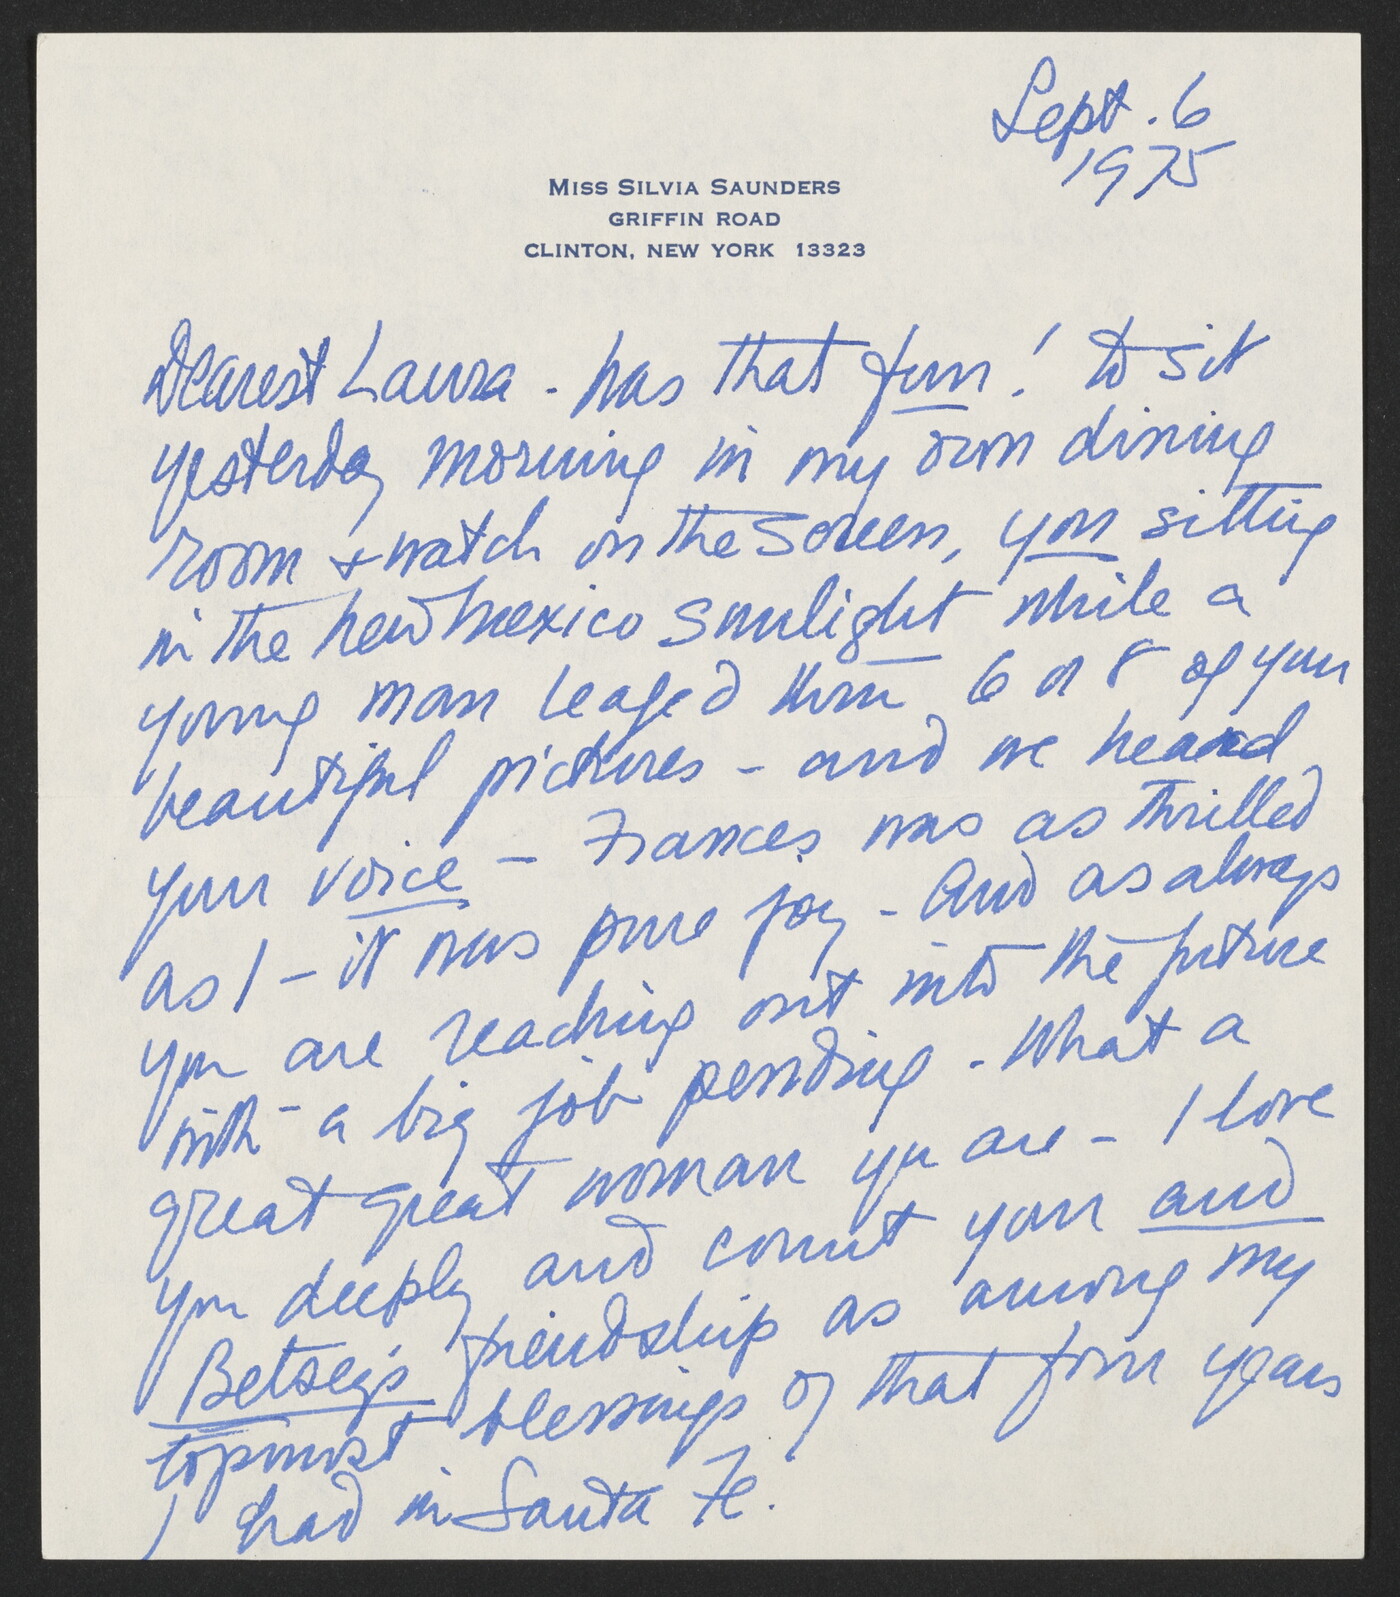 Sept. 6
1975
MISS SILVIA SAUNDERS
GRIFFIN ROAD
CLINTON, NEW YORK 13323
Dearest Laura - was that fun! to sit
yesterday morning in my own dining
room & watch on the screen, you sitting
in the New Mexico sunlight while a
young man leafed thru 6 or 8 of your
beautiful pictures - and we heard
your voice - Frances was as thrilled
as I - it was pure joy - And as always
you are reaching out into the future
with a big job pending - What a
great great woman you are - I love
you deeply and count your and
Betsey's friendship as among my
topmost blessings of that four years
I had in Santa Fe.